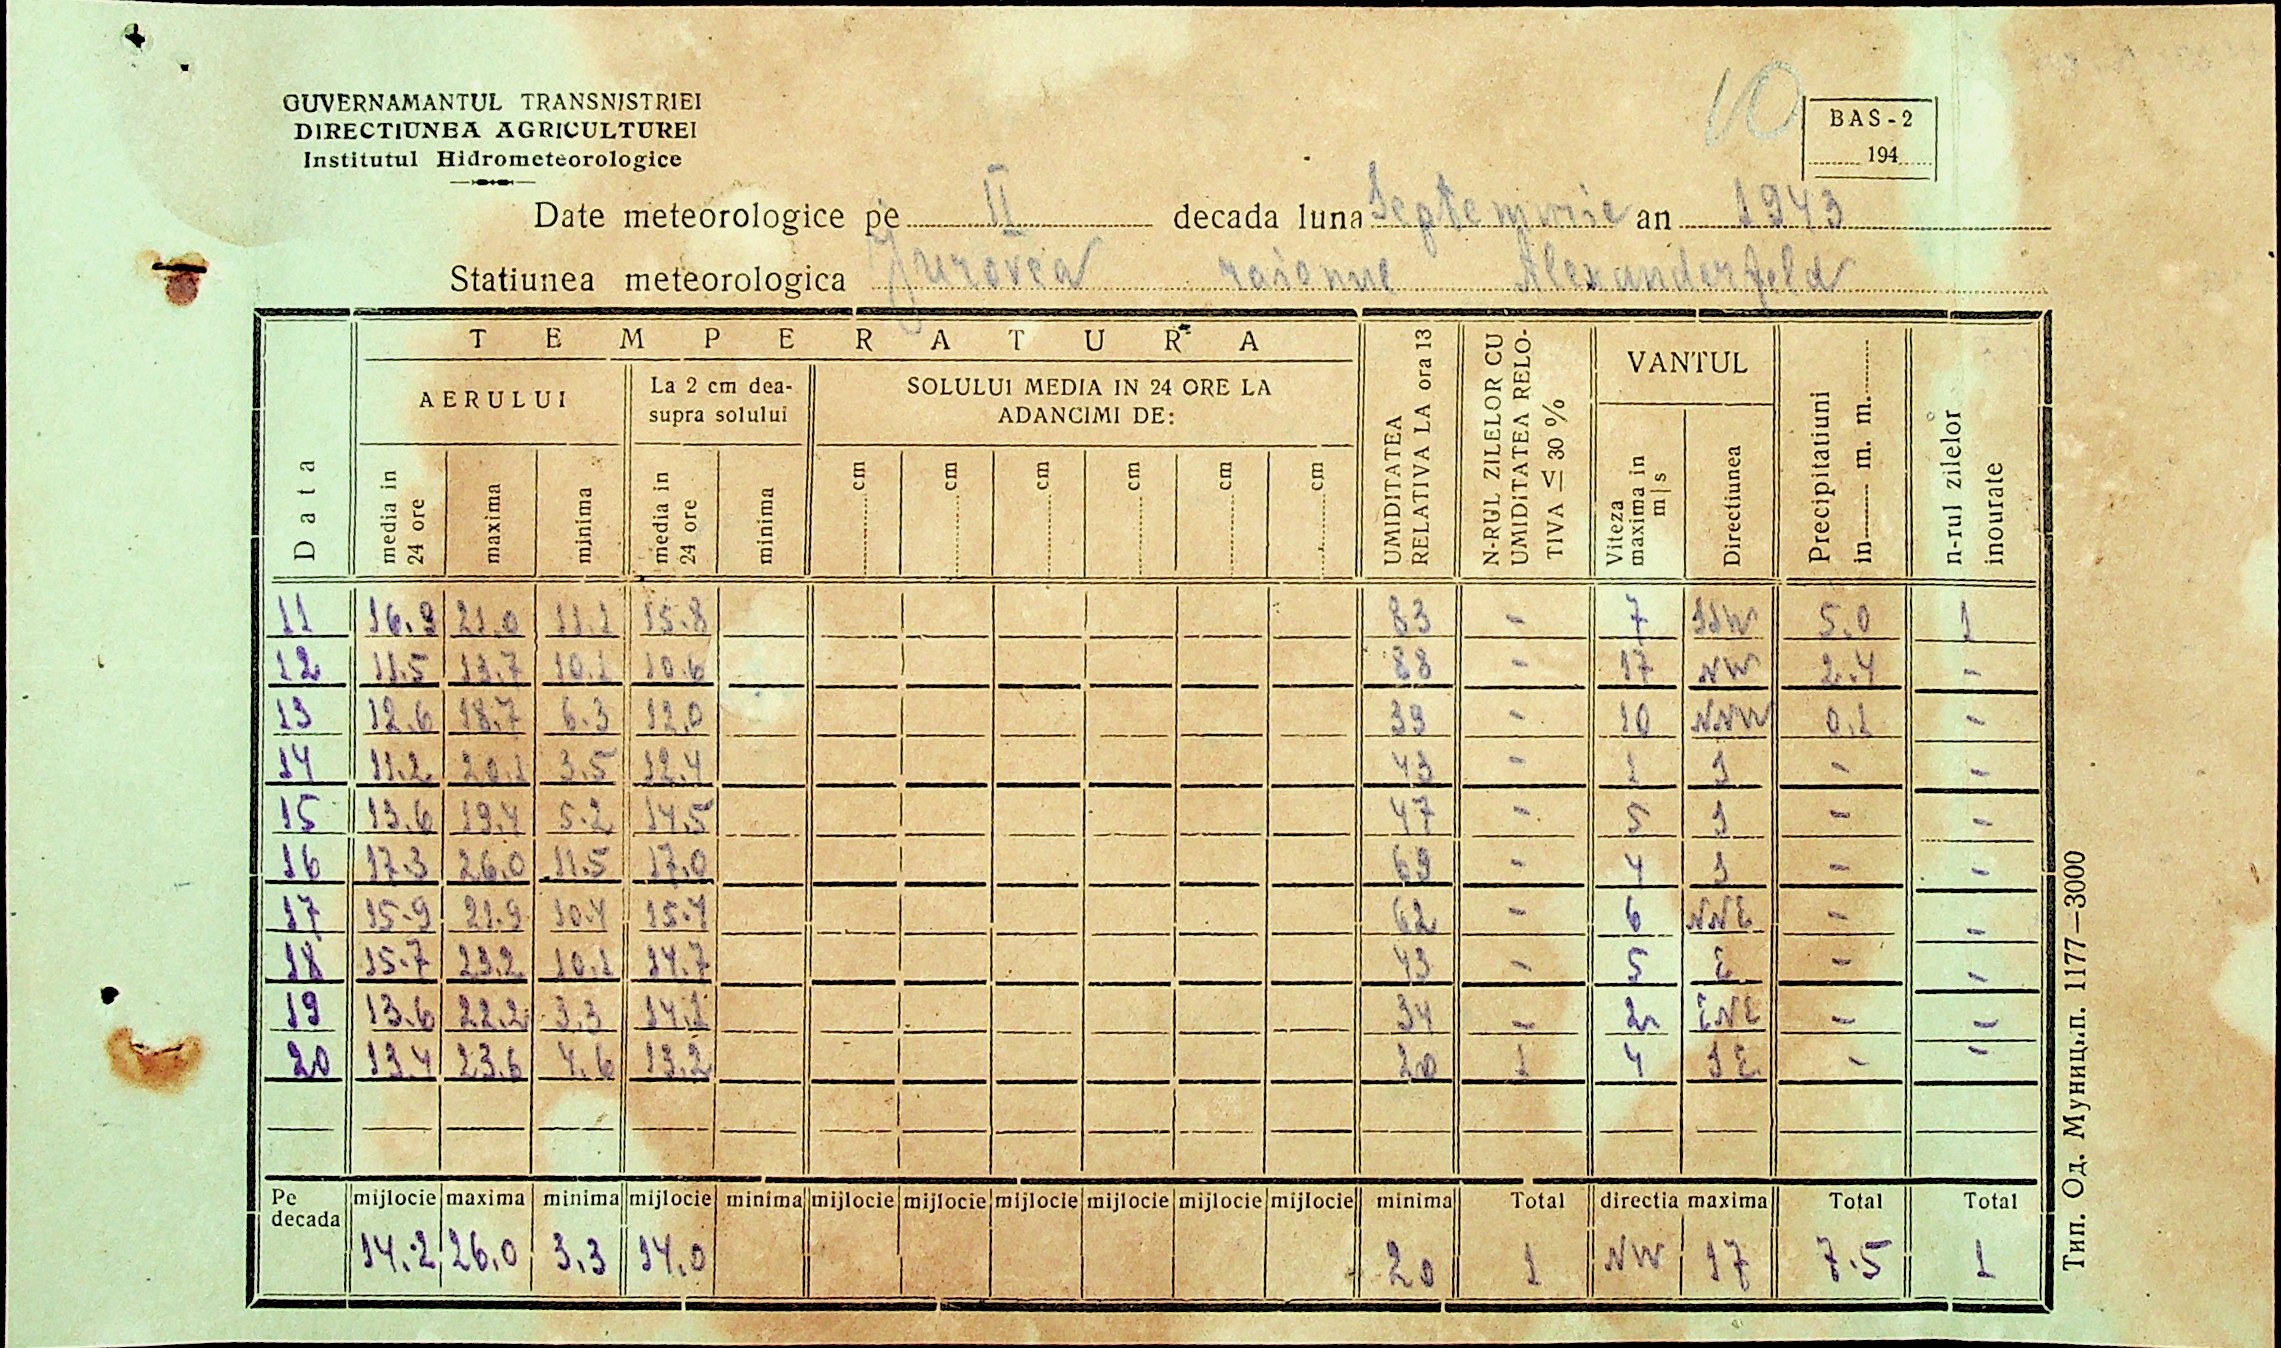 GUVERNAMANTUL TRANSNISTRIEI
DIRECTIUNEA AGRICULTUREI
Institutul Hidrometeorologice
10
BAS-2
194
Date meteorologice pe II decada luna Septembrie an 1943
Statiunea meteorologica Jurovca raionul Alexanderfeld
Data
TEMPERATURA
AERULUI
La 2 cm dea-
supra solului
SOLULUI MEDIA IN 24 ORE LA
ADANCIMI DE:
media in
24 ore
maxima
minima
media in
24 ore
minima
cm cm cm cm cm cm
UMIDITATEA
RELATIVA LA ora 13
N-RUL ZILELOR CU
UMIDITATEA RELO-
TIVA ≤ 30 %
VANTUL
Viteza
maxima in
m|s
Directiunea
Precipitatiuni
in m. m.
n-rul zilelor
inourate
11 16.9 21.0 11.1 15.8 83 - 7 SSW 5.0 1
12 11.5 13.7 10.1 10.6 88 - 17 NW 2.4 -
13 12.6 18.7 6.3 12.0 39 - 10 NNW 0.1 -
14 11.2 20.1 3.5 12.4 43 - 1 S - -
15 13.6 19.4 5.2 14.5 47 - 5 S - -
16 17.3 26.0 11.5 17.0 69 - 4 S - -
17 15.9 21.9 10.4 15.4 62 - 6 NNE - -
18 15.7 23.2 10.1 14.7 43 - 5 E - -
19 13.6 22.2 3.3 14.1 34 - 2 ENE - -
20 13.4 23.6 4.6 13.2 20 1 4 SE - -
Pe
decada
mijlocie maxima minima mijlocie minima mijlocie mijlocie mijlocie mijlocie mijlocie mijlocie minima Total directia maxima Total Total
14.2 26.0 3.3 14.0 20 1 NW 17 7.5 1
Тип. Од. Муниц.п. 1177—3000